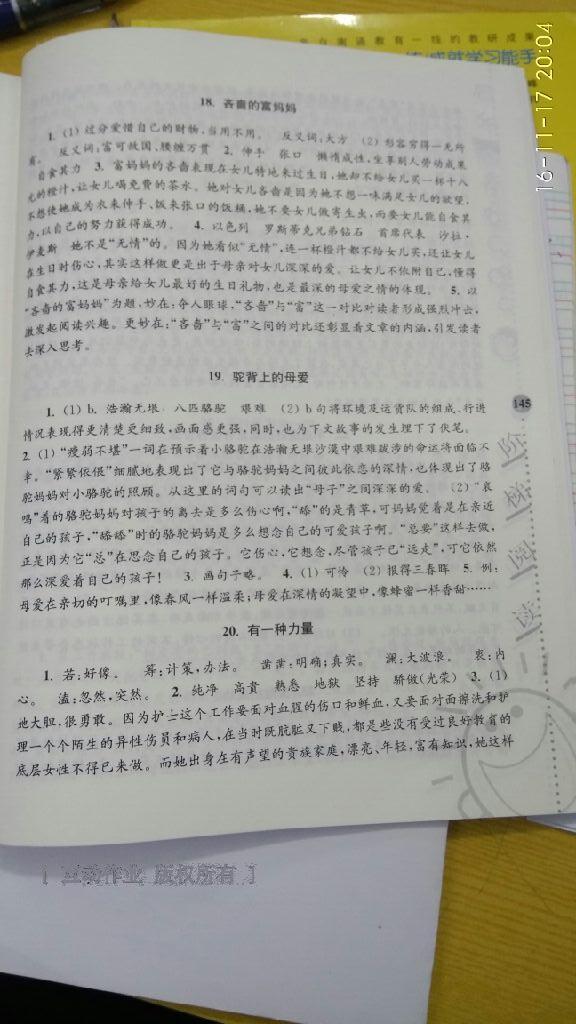 一线的教研成果
成就学习能手
16-11-17 20:04
18. 吝啬的富妈妈
1. (1) 过分爱惜自己的财物,当用不用。 反义词:大方 (2) 形容穷得一无所
有。 反义词:富可敌国、腰缠万贯 2. 伸手 张口 懒惰成性,坐享别人劳动成果
自食其力 3. 富妈妈的吝啬表现在女儿特地来过生日,她却不给女儿买一杯十八
元的橙汁,让女儿喝免费的茶水。她对女儿吝啬是因为她不想一味满足女儿的欲望,
不想使她成为衣来伸手、饭来张口的饭桶,她不要女儿做寄生虫,而要女儿能自食其
力,以自己的努力获得成功。 4. 以色列 罗斯蒂克兄弟钻石 首席代表 沙拉·
伊麦斯 她不是“无情”的。因为她看似“无情”,连一杯橙汁都不给女儿买,还让女儿
在生日时伤心,其实这样做更是出于母亲对女儿深深的爱。让女儿不依附自己,懂得
自食其力,这是母亲给女儿最好的生日礼物,也是最深的母爱之情的体现。 5. 以
“吝啬的富妈妈”为题,妙在:夺人眼球,“吝啬”与“富”这一对比对读者形成强烈冲击,
激发起阅读兴趣。更妙在:“吝啬”与“富”之间的对比还彰显着文章的内涵,引发读者
去深入思考。
19. 驼背上的母爱
1. (1) b. 浩瀚无垠 八匹骆驼 艰难 (2) b句将环境及运货队的组成、行进
情况表现得更清楚更细致,画面感更强,同时,也为下文故事的发生埋下了伏笔。
2. (1) “瘦弱不堪”一词在预示着小骆驼在浩瀚无垠沙漠中艰难跋涉的命运将面临不
幸。“紧紧依偎”细腻地表现出了它与骆驼妈妈之间彼此依恋的深情,也体现出了骆
驼妈妈对小骆驼的照顾。从这里的词句可以读出“母子”之间深深的爱。 (2) “哀
鸣”着的骆驼妈妈对孩子的离去是多么伤心啊,“舔”的是青草,可妈妈觉着是在亲近
自己的孩子,“舔舔”时的骆驼妈妈是多么想念自己的可爱孩子啊。“总要”这样去做,
正是因为它“总”在思念自己的孩子。它伤心,它想念,尽管孩子已“远走”,可它依然
那么深爱着自己的孩子! 3. 画句子略。 4. (1) 可怜 (2) 报得三春晖 5. 例:
母爱在亲切的叮嘱里,像春风一样温柔;母爱在深情的凝望中,像蜂蜜一样香甜……
20. 有一种力量
1. 若:好像。 筹:计策,办法。 凿凿:明确;真实。 澜:大波浪。 衷:内
心。 溘:忽然,突然。 2. 纯净 高贵 熟悉 地狱 坚持 骄傲(光荣) 3. (1)
她大胆,很勇敢。因为护士这个工作要面对血腥的伤口和鲜血,又要面对面擦洗和护
理一个个陌生的异性伤员和病人,在当时既肮脏又下贱,都是些没有受过良好教育的
底层女性不得已来做。而她出身在有声望的贵族家庭,漂亮、年轻,富有知识,她这样
145
阶
梯
阅
读
[ 互动作业 版权所有 ]